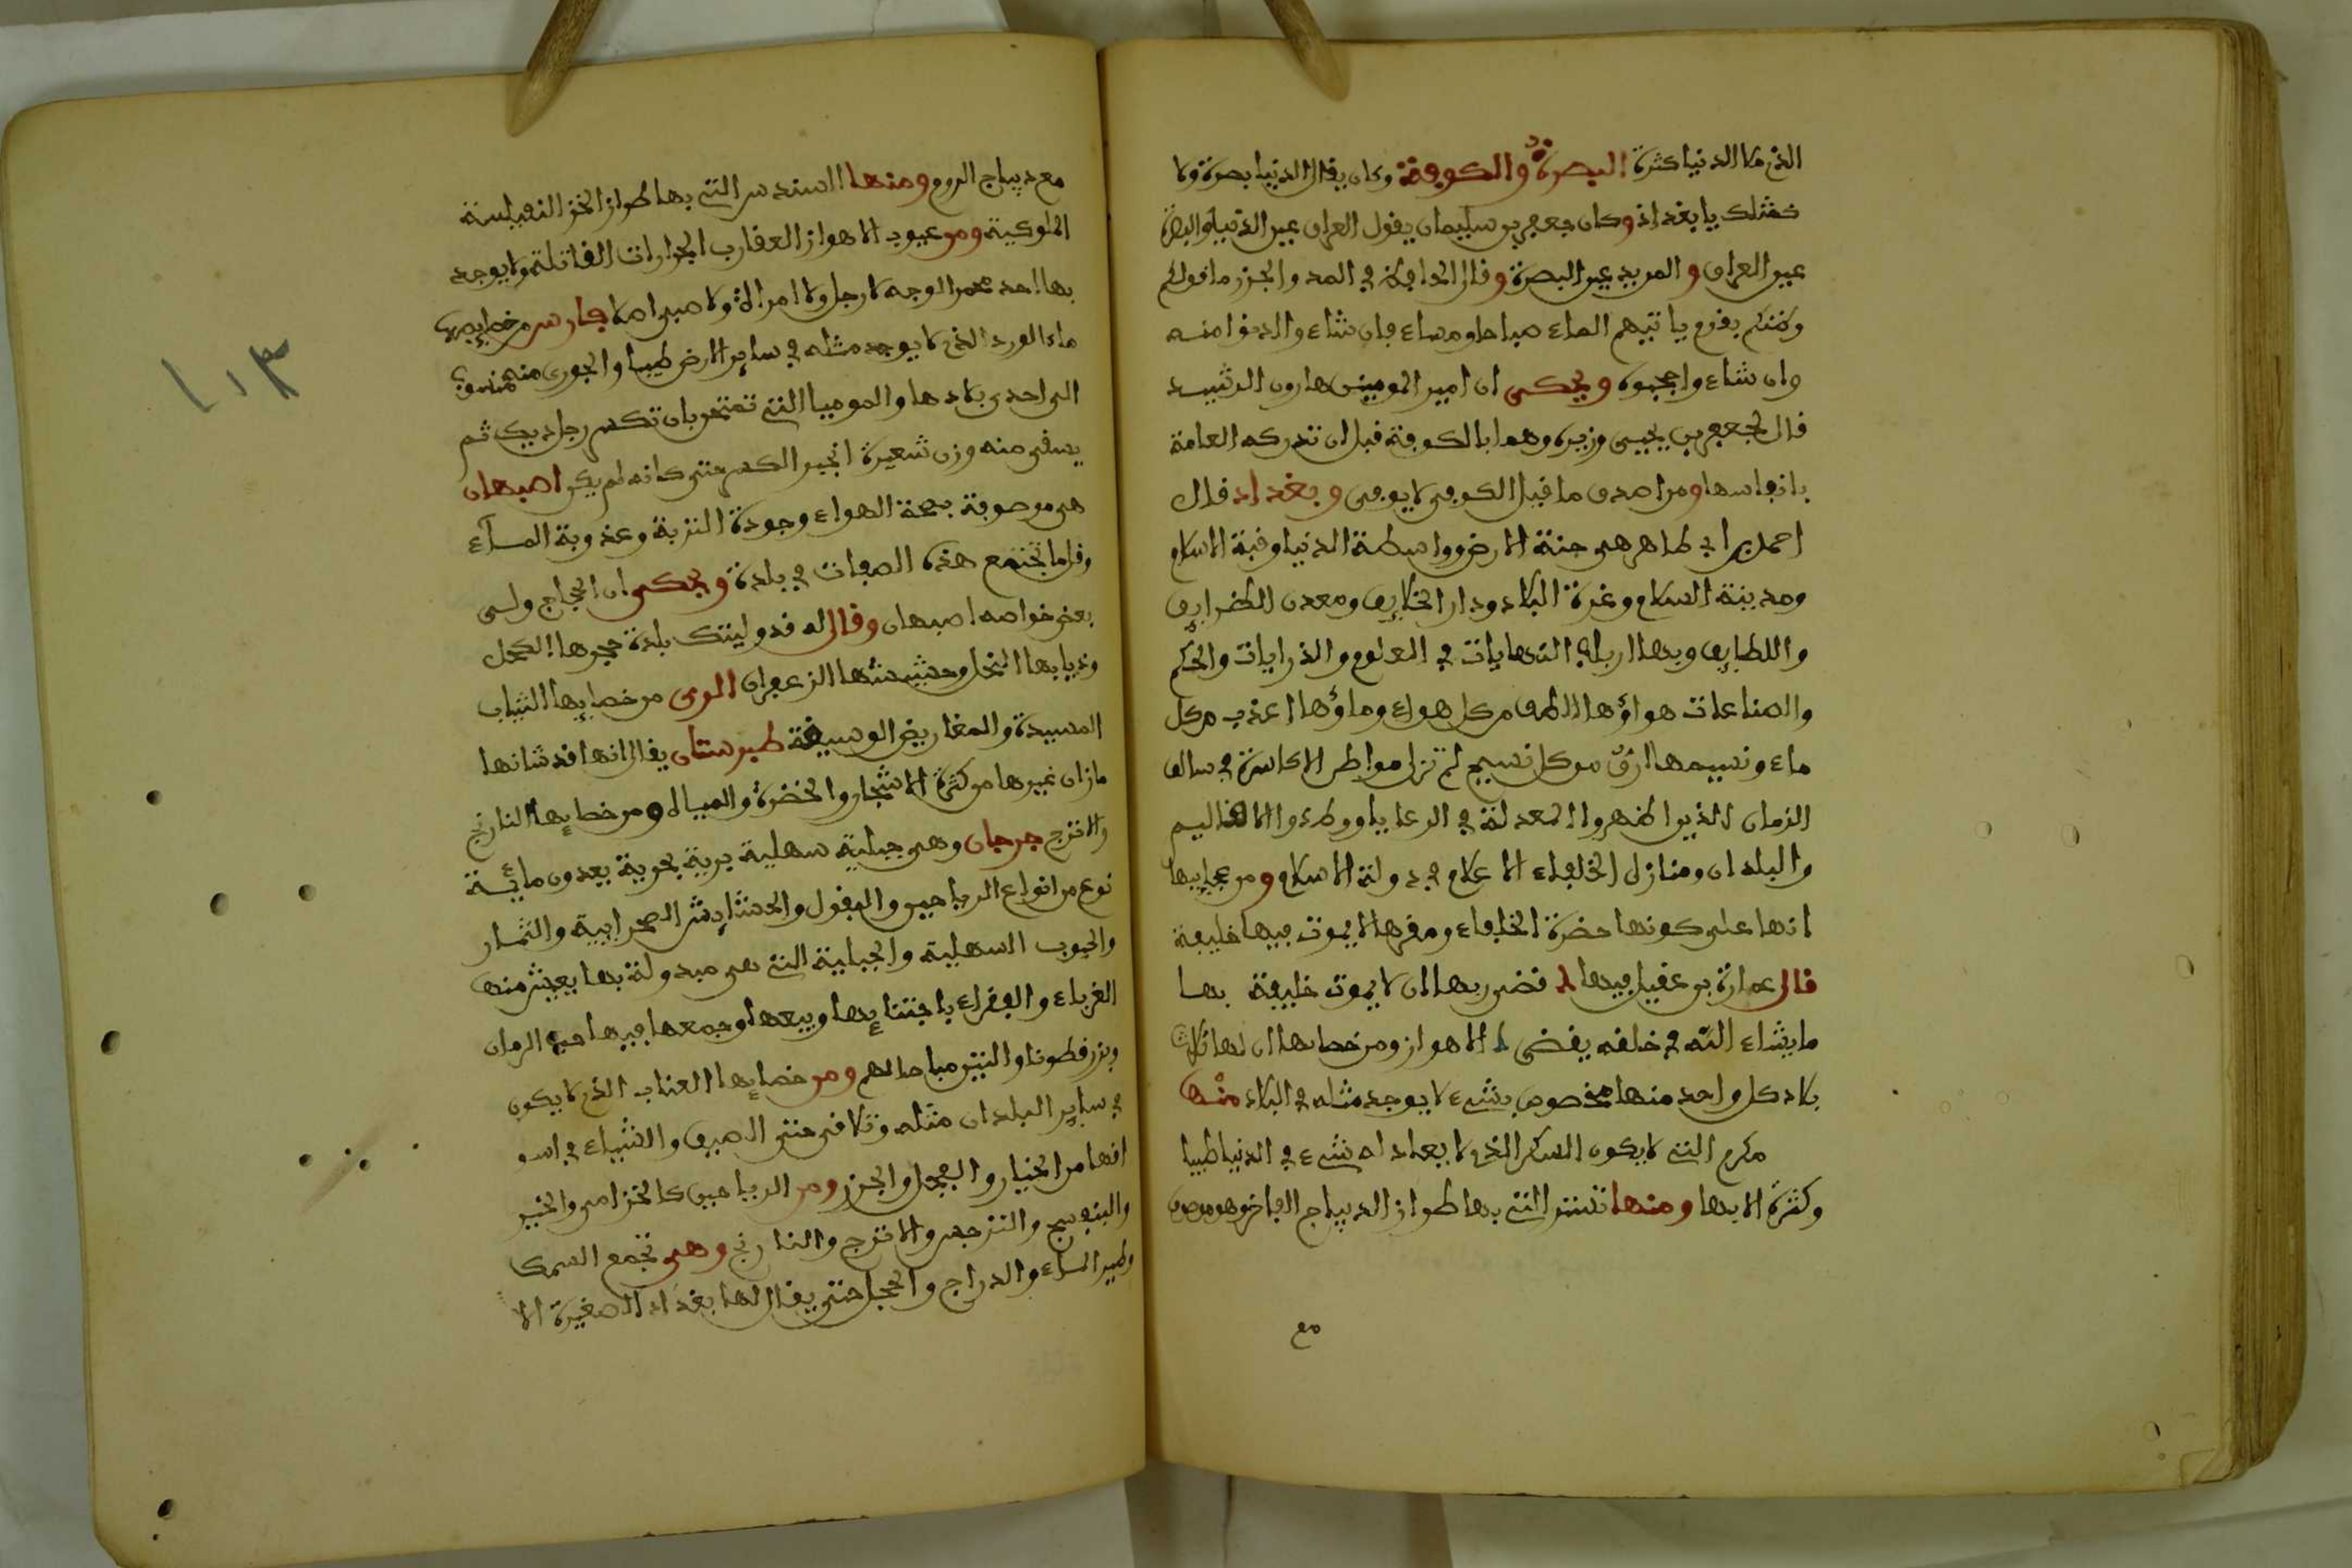 الذي ملا الدنيا كثرة البصرة والكوفة وكان يقال الدنيا بصرة ولا
كمثلك يا بغداد وكان جعفر بن سليمان يقول العراق عين الدنيا والبصرة
عين العراق والمربد عين البصرة وقال الجاحظ في المد والجزر ما قولكم
وظنكم بقوم ياتيهم الماء صباحا ومساء فان شاءوا ادنوا منه
وان شاءوا حجبوه ويحكى ان امير المومنين هارون الرشيد
قال لجعفر بن يحيى وزيره وهما بالكوفة قبل ان تدركه العامة
بانفاسها ومن اصدق ما قيل الكوفي لا يوفي وبغداد قال
احمد بن ابي طاهر هي جنة الارض وواسطة الدنيا وقبة الاسلام
ومدينة السلام وغرة البلاد ودار الخلايف ومعدن الظرايف
واللطايف وبها ارباب النهايات في العلوم والدرايات والحكم
والصناعات هواؤها الطف من كل هواء وماؤها اعذب من كل
ماء ونسيمها ارق من كل نسيم لم تزل مواطن الاكاسرة في سالف
الزمان الذين اظهروا المعدلة في الرعايا ووطدوا الاقاليم
والبلدان ومنازل الخلفاء الاعلام في دولة الاسلام ومن عجايبها
انها على كونها حضرة الخلفاء ومقرها لا يموت فيها خليفة
قال عمارة بن عقيل فيها قضى ربها ان لا يموت خليفة بها
ما يشاء الله في خلقه يقضي الاهواز ومن خصايصها ان لها ثلاث
بلاد كل واحد منها مخصوص بشيء لا يوجد مثله في البلاد منها
مكرم التي لا يكون السكر الذي لا يعادله شيء في الدنيا طيبا
وكثرة الا بها ومنها تستر التي بها طراز الديباج الفاخر وهو موصوف
مع
مع ديباج الروم ومنها السندس التي بها طراز الخز النفيسة
الملوكية ومن عيوب الاهواز العقارب الجرارات القاتلة ولا يوجد
بها احد محمر الوجه لا رجل ولا امراة ولا صبي اصلا فارس من خصايصها
ماء الورد الذي لا يوجد مثله في ساير الارض طيبا والجوري منه منسوب
الى احدى بلادها والموميا التي تمتحن بان تكسر رجل ديك ثم
يسقى منه وزن شعيرة انجبر الكسر حتى كانه لم يكن اصبهان
هي موصوفة بصحة الهواء وجودة التربة وعذوبة المآء
وقلما تجتمع هذه الصفات في بلدة ويحكى ان الحجاج ولى
بعض خواصه اصبهان وقال له قد وليتك بلدة حجرها الكحل
وذبابها النحل وحشيشها الزعفران الري من خصايصها الثياب
المسيدة والمقاريض الوسيقة طبرستان يقال انها قد شانها
ما زان غيرها من كثرة الاشجار والخضرة والمياه ومن خصايصها النارنج
والاترج جرجان وهي جبلية سهلية برية بحرية يعدون مائة
نوع من انواع الرياحين والبقول والحشايش الصحراوية والثمار
والحبوب السهلية والجبلية التي هي مبذولة بها يعيش منها
الغرباء والفقراء باجتنايها وبيعها وجمعها فيها حب الرمان
وبزر قطونا والتين مباحا لهم ومن خصايصها العناب الذي لا يكون
في ساير البلدان مثله وتلاقي حتى الصيف والشتاء في اسو
اقها من الخيار والفجل والجزر ومن الرياحين كالخزامى والخير
والبنفسج والنرجس والاترج والنارنج وهي تجمع السمك
وطير الماء والدراج والحجل حتى يقال لها بغداد الصغيرة الا
١١٣